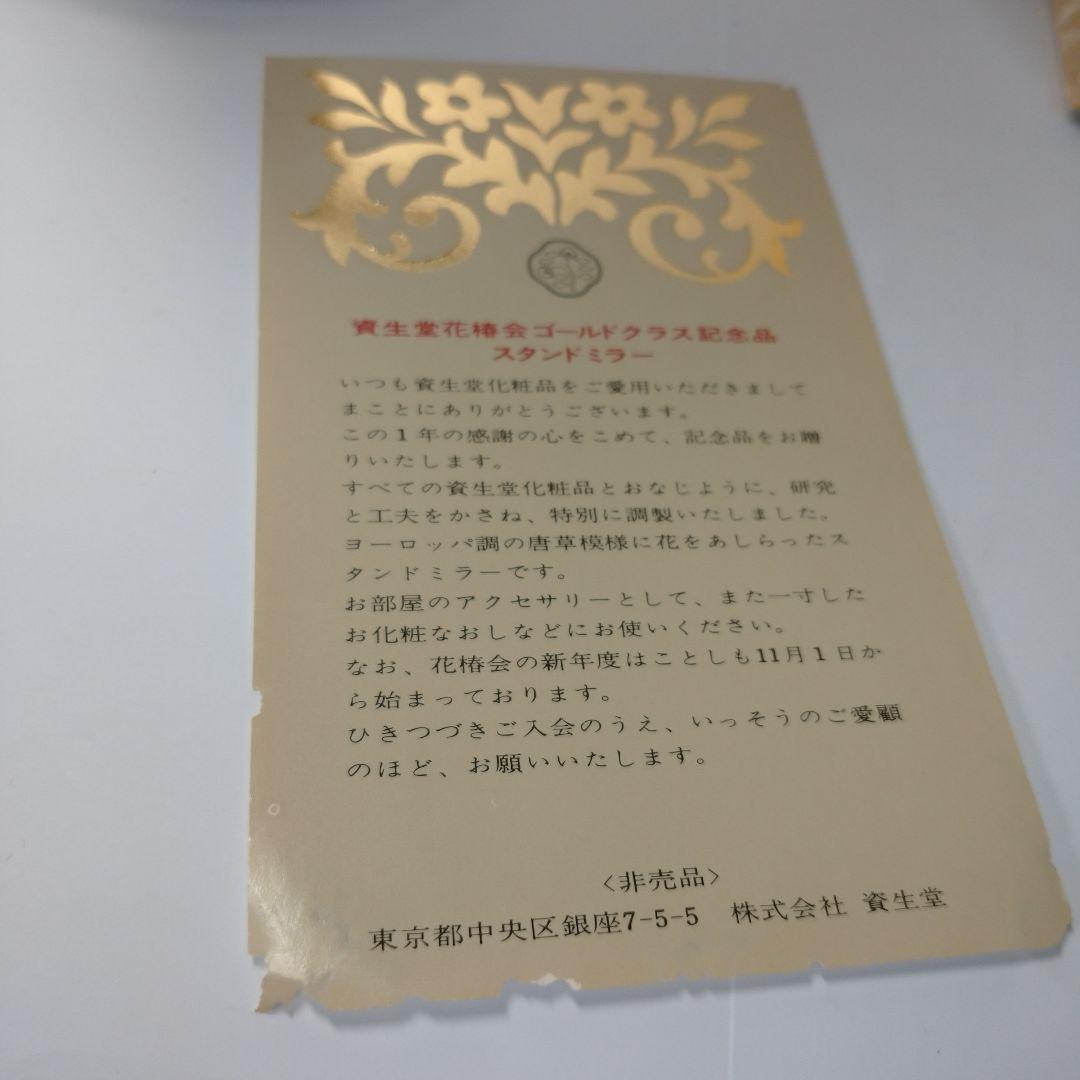 資生堂花椿会ゴールドクラス記念品
スタンドミラー
いつも資生堂化粧品をご愛用いただきまして
まことにありがとうございます。
この1年の感謝の心をこめて、記念品をお贈
りいたします。
すべての資生堂化粧品とおなじように、研究
と工夫をかさね、特別に調製いたしました。
ヨーロッパ調の唐草模様に花をあしらったス
タンドミラーです。
お部屋のアクセサリーとして、また一寸した
お化粧なおしなどにお使いください。
なお、花椿会の新年度はことしも11月1日か
ら始まっております。
ひきつづきご入会のうえ、いっそうのご愛顧
のほど、お願いいたします。
〈非売品〉
東京都中央区銀座7-5-5 株式会社 資生堂